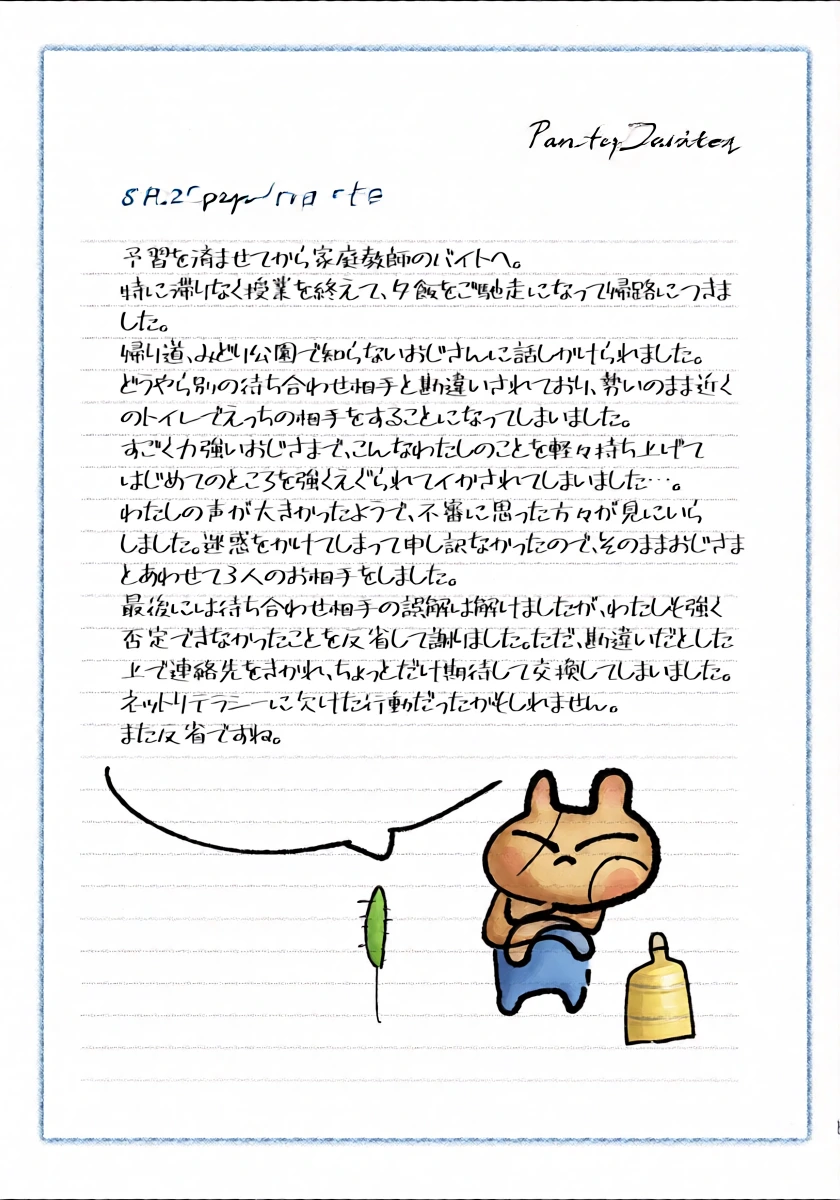 予習を済ませてから家庭教師のバイトへ。
特に滞りなく授業を終えて、夕飯をご馳走になって帰路につきま
した。
帰り道、みどり公園で知らないおじさんに話しかけられました。
どうやら別の待ち合わせ相手と勘違いされており、勢いのまま近く
のトイレでえっちの相手をすることになってしまいました。
すごく力強いおじさまで、こんなわたしのことを軽々持ち上げて
はじめてのところを強くえぐられてイかされてしまいました…。
わたしの声が大きかったようで、不審に思った方々が見にいら
しました。迷惑をかけてしまって申し訳なかったので、そのままおじさま
とあわせて3人のお相手をしました。
最後には待ち合わせ相手の誤解は解けましたが、わたしも強く
否定できなかったことを反省して謝りました。ただ、勘違いだとした
上で連絡先をきかれ、ちょっとだけ期待して交換してしまいました。
ネットリテラシーに欠けた行動だったかもしれません。
また反省ですね。